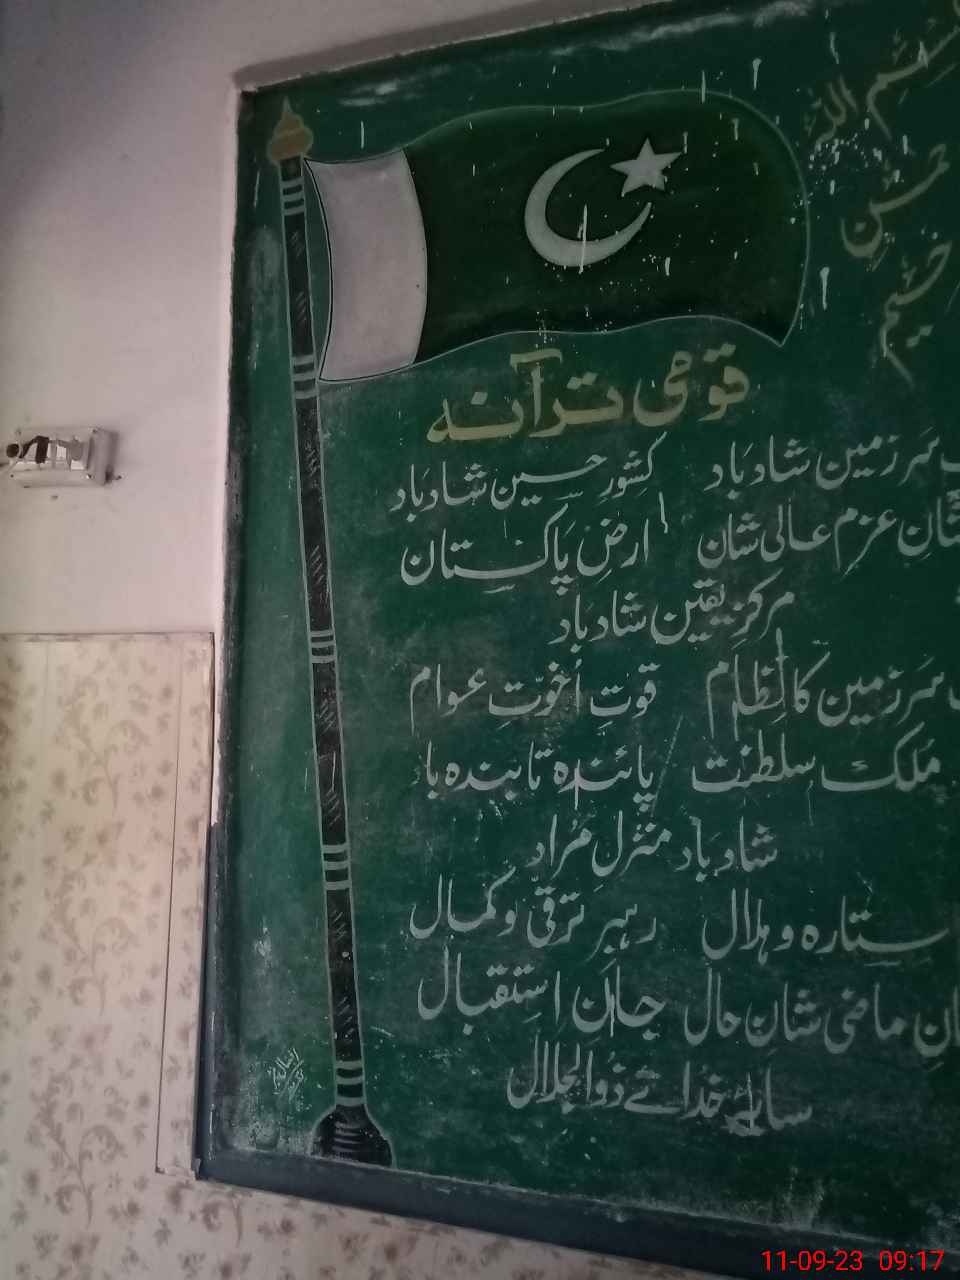 اللہ
قومی ترآنہ
سرزمین شاد باد کشورِ حسین شاد باد
شانِ عزم عالی شان ارضِ پاکستان
مرکزِ یقین شاد باد
سرزمین کا نظام قوتِ اُخوّتِ عوام
ملک سلطنت پائندہ تابندہ با
شاد باد منزلِ مُراد
ستارہ و ہلال رہبرِ ترقّی و کمال
ماضی شانِ حال جانِ استقبال
سایۂ خدائے ذوالجلال
11-09-23 09:17